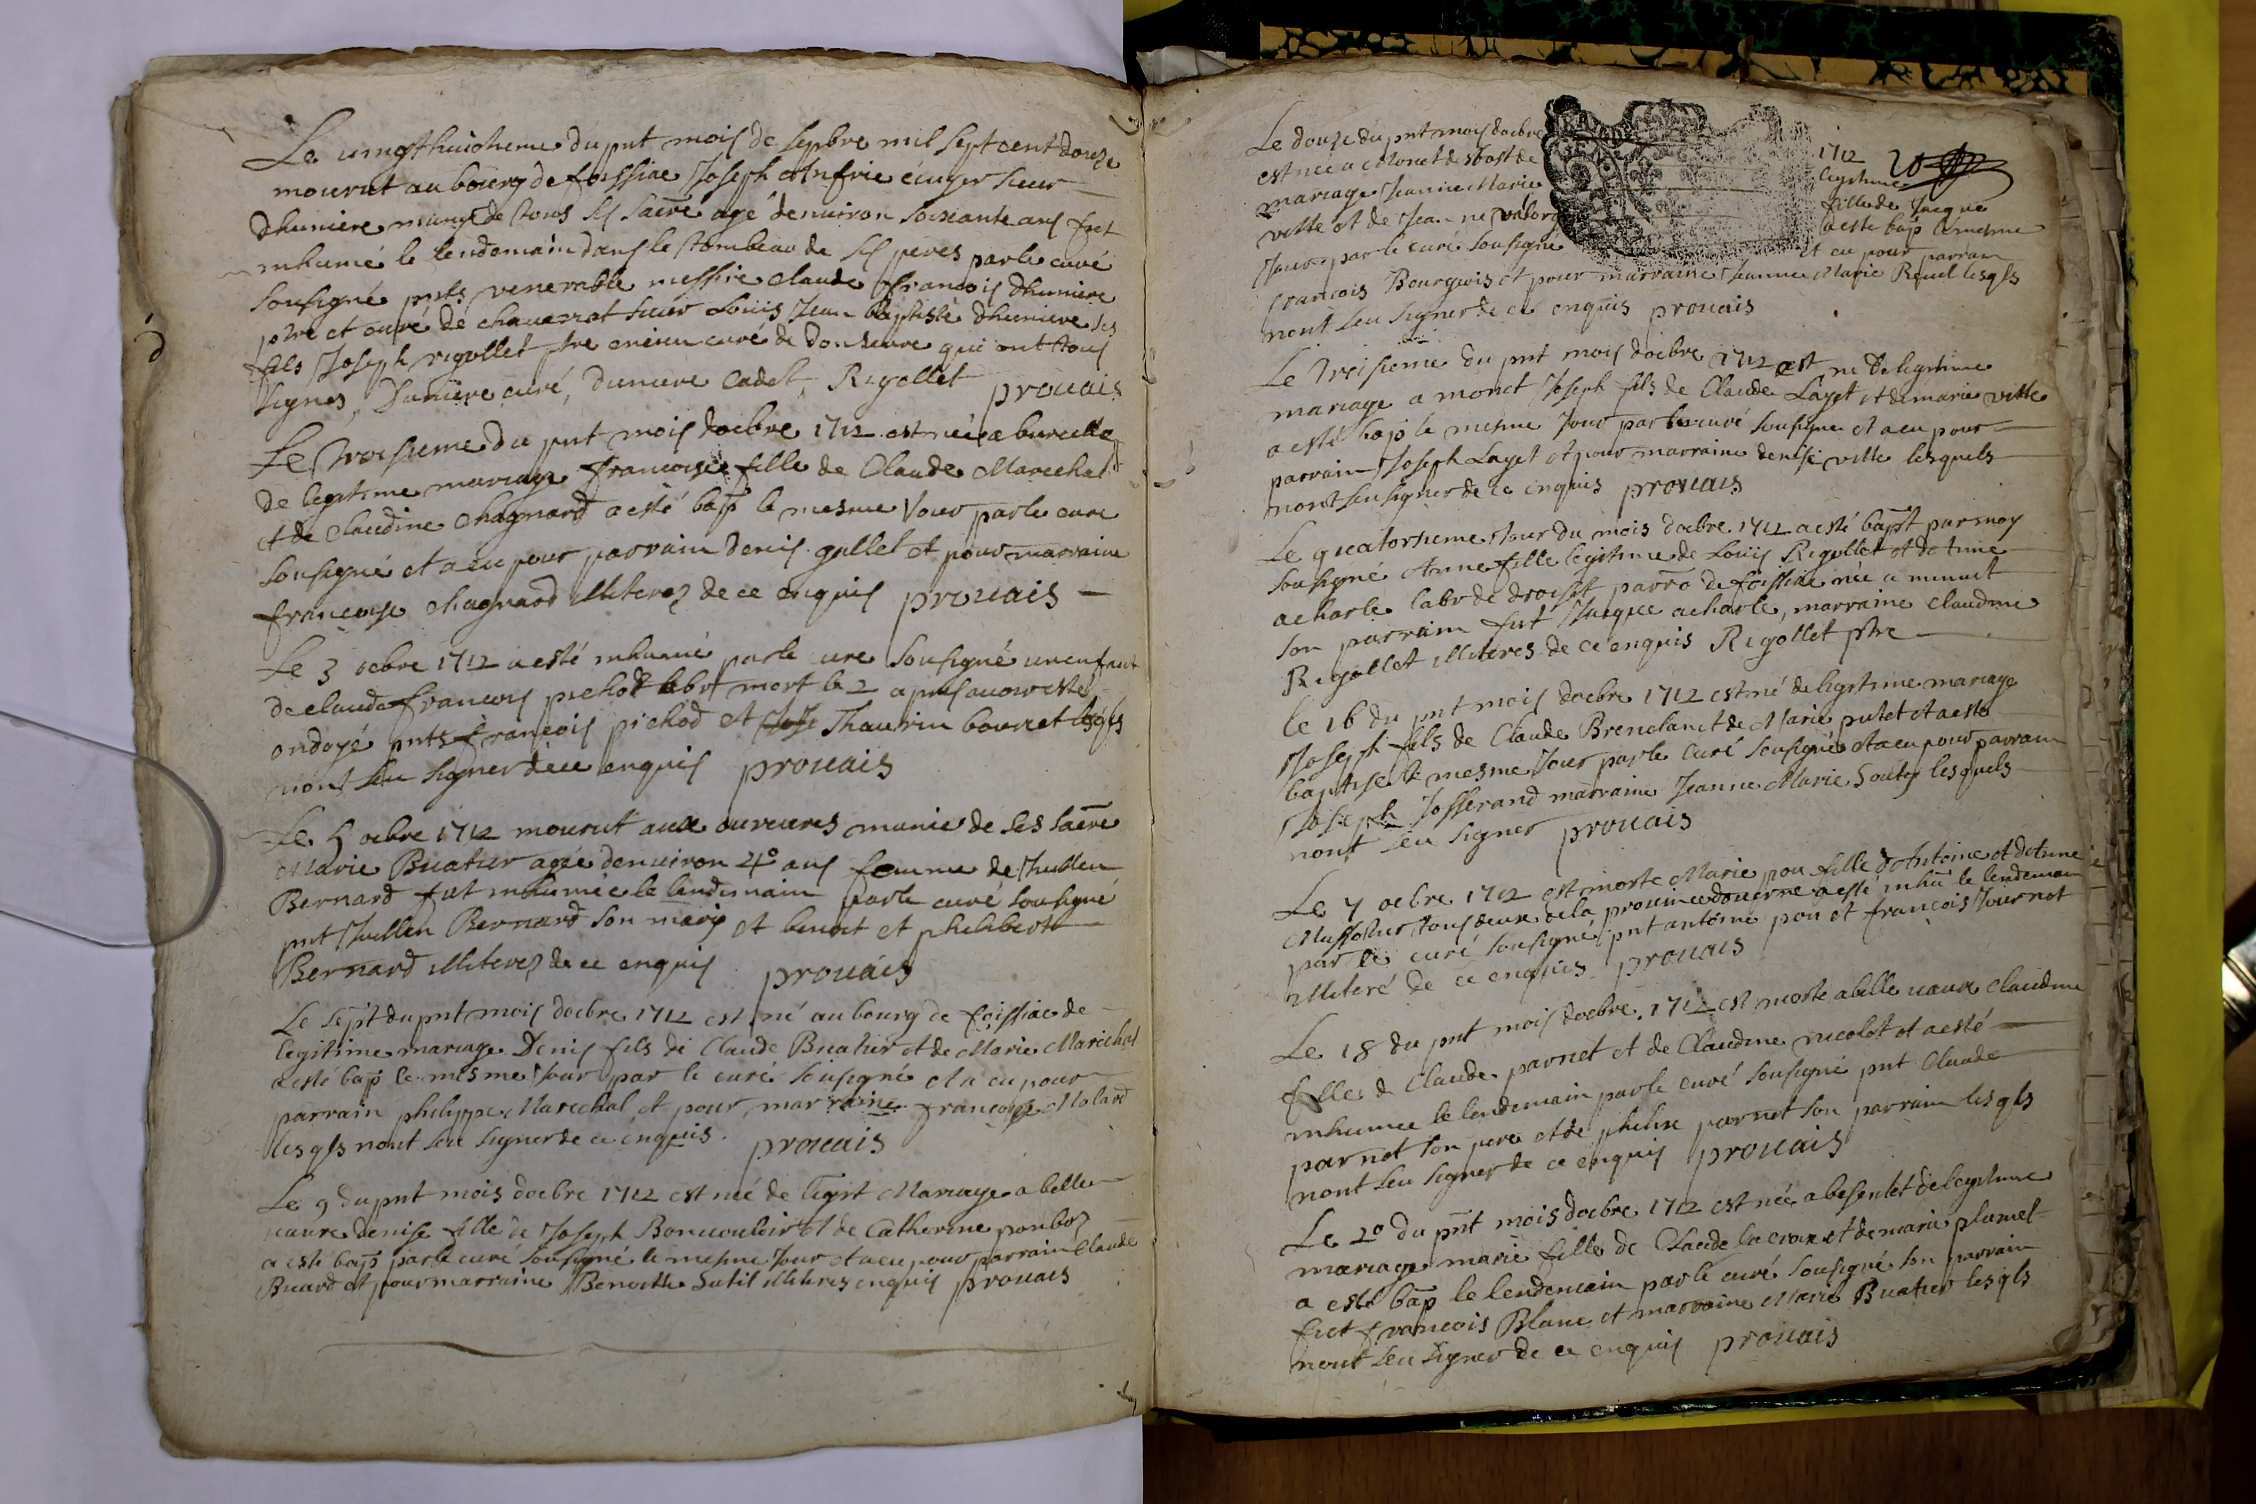 Le vingthuictieme du pnt mois de sepbre mil sept cent douze
mourut au bourg de foissiac Joseph Anfrie ecuyer sieur
dhuniere muny de tous ses sacre agé denuiron soixante ans fut
inhumé le lendemain dans le tombeau de ses peres par le curé
sousigné pnts venerable messire claude francois dhuniere
ptre et curé de chauannat sieur Louis Jean baptiste dhuniere ses
fils Joseph rigollet ptre encien curé de qui ont tous
signes, Duniere curé, duniere Cadet, Rigollet prouais
Le troisieme du pnt mois doebre 1712 est née a buruella
de legitime mariage francoise fille de Claude Marechal
et de Claudine Chagnard a esté bap le mesme Jour par le cure
sousigné et a eu pour parrain denis gullet et pour marraine
francoise chagnard illiterez de ce enquis prouais
Le 3 oebre 1712 a esté inhumé par le cure sousigné un enfant
de claude francois pichod labr mort le 2 apres auoir esté
ondoyé pnts francois pichod et Thaurin bourret lesqls
nont seu signer de ce enquis prouais
Le 5 oebre 1712 mourut aux ouureures munie de ses sacre
Marie Buatier agée denuiron 40 ans femme de Jullien
Bernard fut inhumée le lendemain par le curé sousigné
pnt Jullien Bernard son mary et benoit et philibert
Bernard illiterez de ce enquis prouais
Le sept du pnt mois doebre 1712 est né au bourg de foissiac de
legitime mariage Denis fils de Claude Buatier et de Marie Marechal
a esté bap le mesme Jour par le curé sousigné et a eu pour
parrain philippe Marechal et pour marraine francoise Molard
lesqls nont seu signer de ce enquis prouais
Le 9 du pnt mois doebre 1712 est née de legit Mariage a belle
uaure denise fille de Joseph Boncouloir et de Catherine ponboz
a esté bap par le curé sousigné le mesme Jour et a eu pour parrain Claude
Buard et pour marraine Benoitte Sutil illiteres enquis prouais
Le douze du pnt mois doebre 1712
est née a colonet de st ost de legitime
mariage Jeanne Marie fille de Jacque
vette et de Jeanne a esté bap le mesme
Jour par le curé sousigné et eu pour parrain
francois Bourgeois et pour marraine Jeanne Marie Reuel lesqls
nont seu signer de ce enquis prouais
Le troisieme du pnt mois doebre 1712 est ne de legitime
mariage a monet Joseph fils de Claude Layet et de marie vette
a esté bap le mesme Jour par le curé sousigne et a eu pour
parrain Joseph Layet et pour marraine denise vette lesquels
nont seu signer de ce enquis prouais
Le quatorsieme Jour du mois doebre 1712 a esté bapt par moy
sousigné Anne fille legitime de Louis Rigollet et dAnne
acharle labr de droiset parro de foissiac née a minuit
son parrain fut Jacque acharle, marraine claudine
Rigollet illiteres de ce enquis Rigollet ptre
le 16 du pnt mois doebre 1712 est né de legitime mariage
Joseph fils de Claude Brenclan et de Marie putet et a esté
baptisé le mesme Jour par le curé sousigné et a eu pour parrain
Joseph Josserand marraine Jeanne Marie Soutez lesquels
nont seu signer prouais
Le 7 oebre 1712 est morte Marie pou fille dAntoine et dAnne
Mussolur tous deux de la prouince douerne a esté inhu le lendemain
par le curé sousigné pnt antoine pou et francois Journot
illiteré de ce enquis prouais
Le 18 du pnt mois doebre 1712 est morte a belle uaure claudine
fille de Claude parnet et de Claudine nicolet et a esté
inhumee le lendemain par le curé sousigné pnt Claude
parnet son pere et de philise parnet son parrain lesqls
nont seu signer de ce enquis prouais
Le 20 du pnt mois doebre 1712 est née a besentet de legitime
mariage marie fille de Claude lacroix et de marie plumet
a esté bap le lendemain par le curé sousigné son parrain
fut francois Blanc et marraine Marie Buatier lesqls
nont seu signer de ce enquis prouais